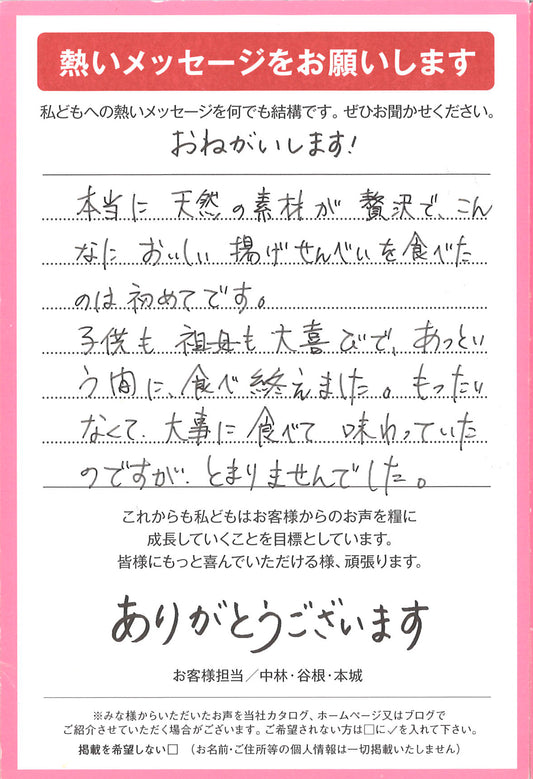 熱いメッセージをお願いします
私どもへの熱いメッセージを何でも結構です。ぜひお聞かせください。
おねがいします!
本当に 天然の素材が 贅沢で、こん
なに おいしい 揚げせんべいを食べた
のは 初めてです。
子供も 祖母も 大喜びで、あっとい
う間に、食べ終えました。もったい
なくて、大事に 食べて 味わっていた
のですが、とまりませんでした。
これからも私どもはお客様からのお声を糧に
成長していくことを目標としています。
皆様にもっと喜んでいただける様、頑張ります。
ありがとうございます
お客様担当/中林・谷根・本城
※みな様からいただいたお声を当社カタログ、ホームページ又はブログで
ご紹介させていただく場合がございます。ご希望されない方は□に✓を入れて下さい。
掲載を希望しない□ (お名前・ご住所等の個人情報は一切掲載いたしません)